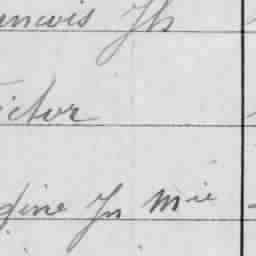 ancois Jh
ictor
gine Jn Mie